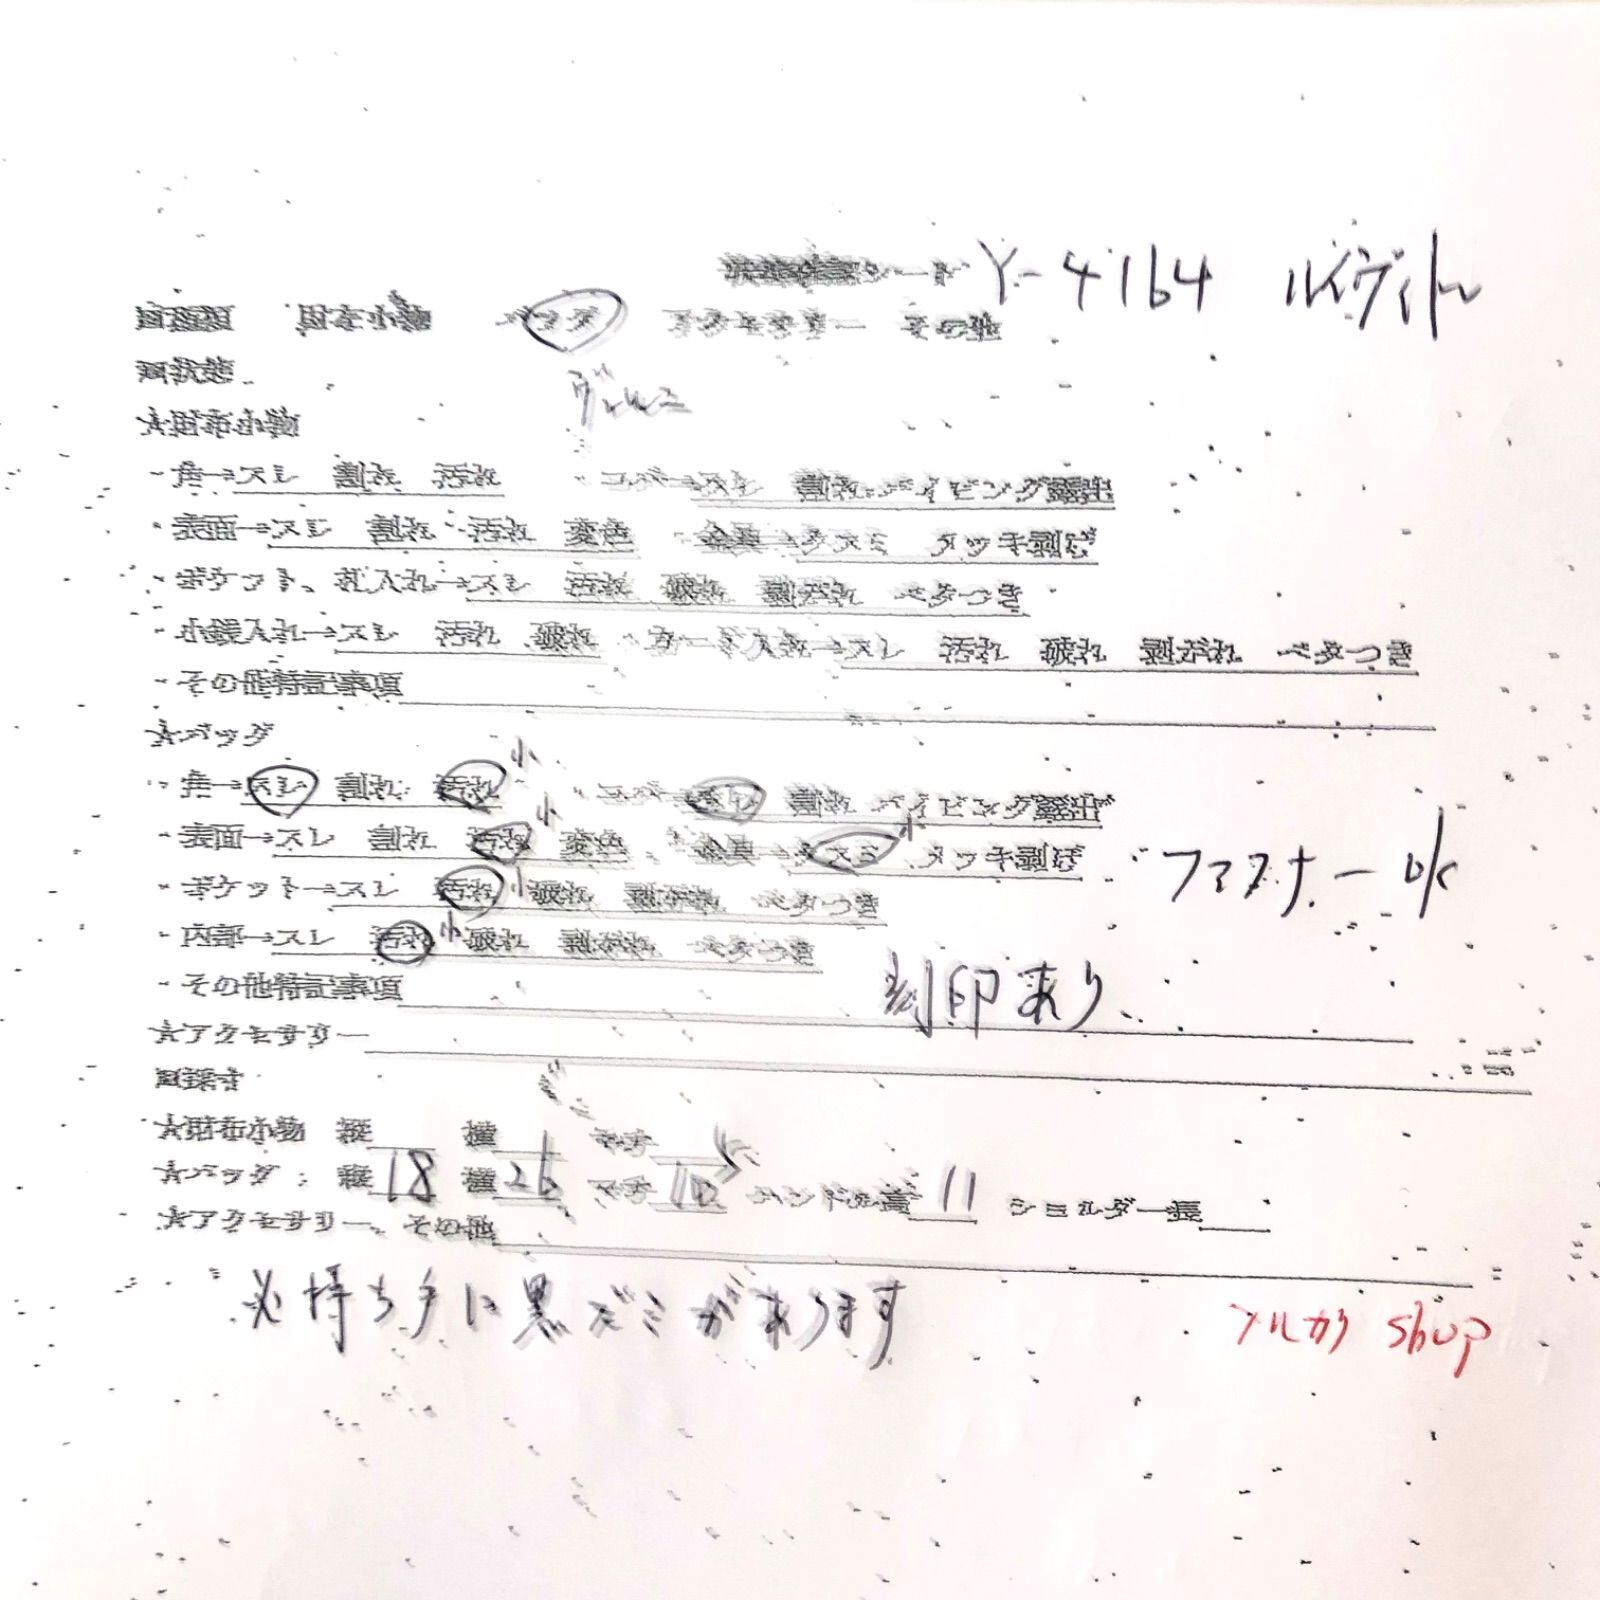 シート Y-4164 ルイヴィトン
財布小物 バッグ アクセサリー その他
状態
ダレルニ
☆財布小物
・角→スレ 割れ 汚れ ・コバ→スレ 割れ パイピング露出
・表面→スレ 割れ 汚れ 変色 ・金具→クスミ メッキ剥げ
・ポケット、札入れ→スレ 汚れ 破れ 剥がれ ベタつき
・小銭入れ→スレ 汚れ 破れ ・カード入れ→スレ 汚れ 破れ 剥がれ ベタつき
・その他特記事項
☆バッグ
・角→スレ 割れ 汚れ 小 ・コバ→スレ 割れ パイピング露出
・表面→スレ 割れ 汚れ 小 変色 ・金具→クスミ 小 メッキ剥げ ・ファスナー ok
・ポケット→スレ 汚れ 小 破れ 剥がれ ベタつき
・内部→スレ 汚れ 小 破れ 剥がれ ベタつき
・その他特記事項 刻印あり
☆アクセサリー
採寸
☆財布小物 縦 横 マチ
☆バッグ：縦18 横26 マチ10.5 ハンドル高11 ショルダー長
☆アクセサリー、その他
※持ち手に黒ズミがあります
メルカリ shop